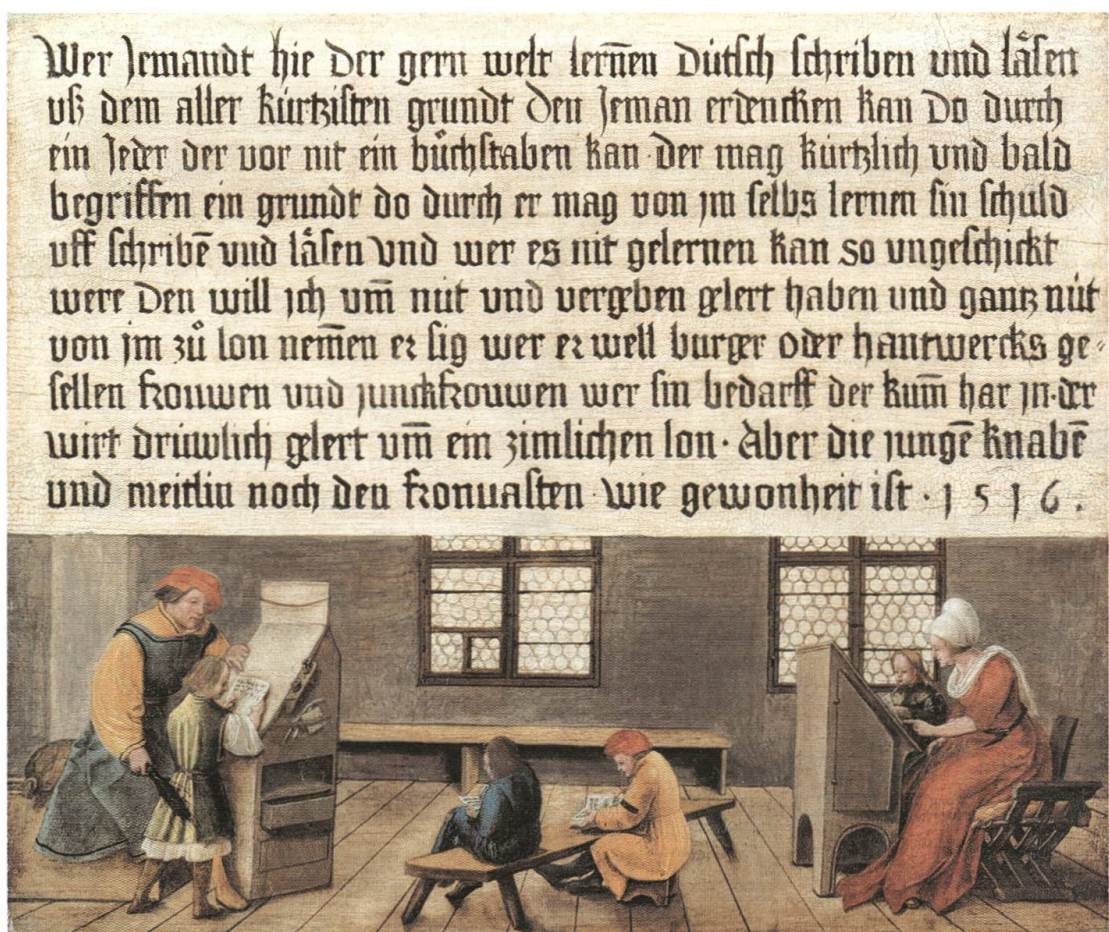 Wer Jemandt hie der gern welt lernn̄en Dütsch schriben und läsen
uß dem aller kürtzisten grundt den Jeman erdencken kan Do durch
ein Jeder der vor nit ein bůchstaben kan · der mag kürtzlich und bald
begriffen ein grundt do durch er mag von jm selbs lernen sin schuld
uff schribē vnd läsen vnd wer es nit gelernen kan so ungeschickt
were Den will ich vm̄ nüt und vergeben gelert haben und gantz nüt
von jm zů lon nem̄en er sig wer er well burger oder hantwercks ge-
sellen frouwen und junckfrouwen wer sin bedarff der kum̄ har jn · der
wirt drüwlich gelert vm̄ ein zimlichen lon · Aber die jungē knabē
und meitlin noch den fronuasten · wie gewonheit ist · 1 5 1 6 .